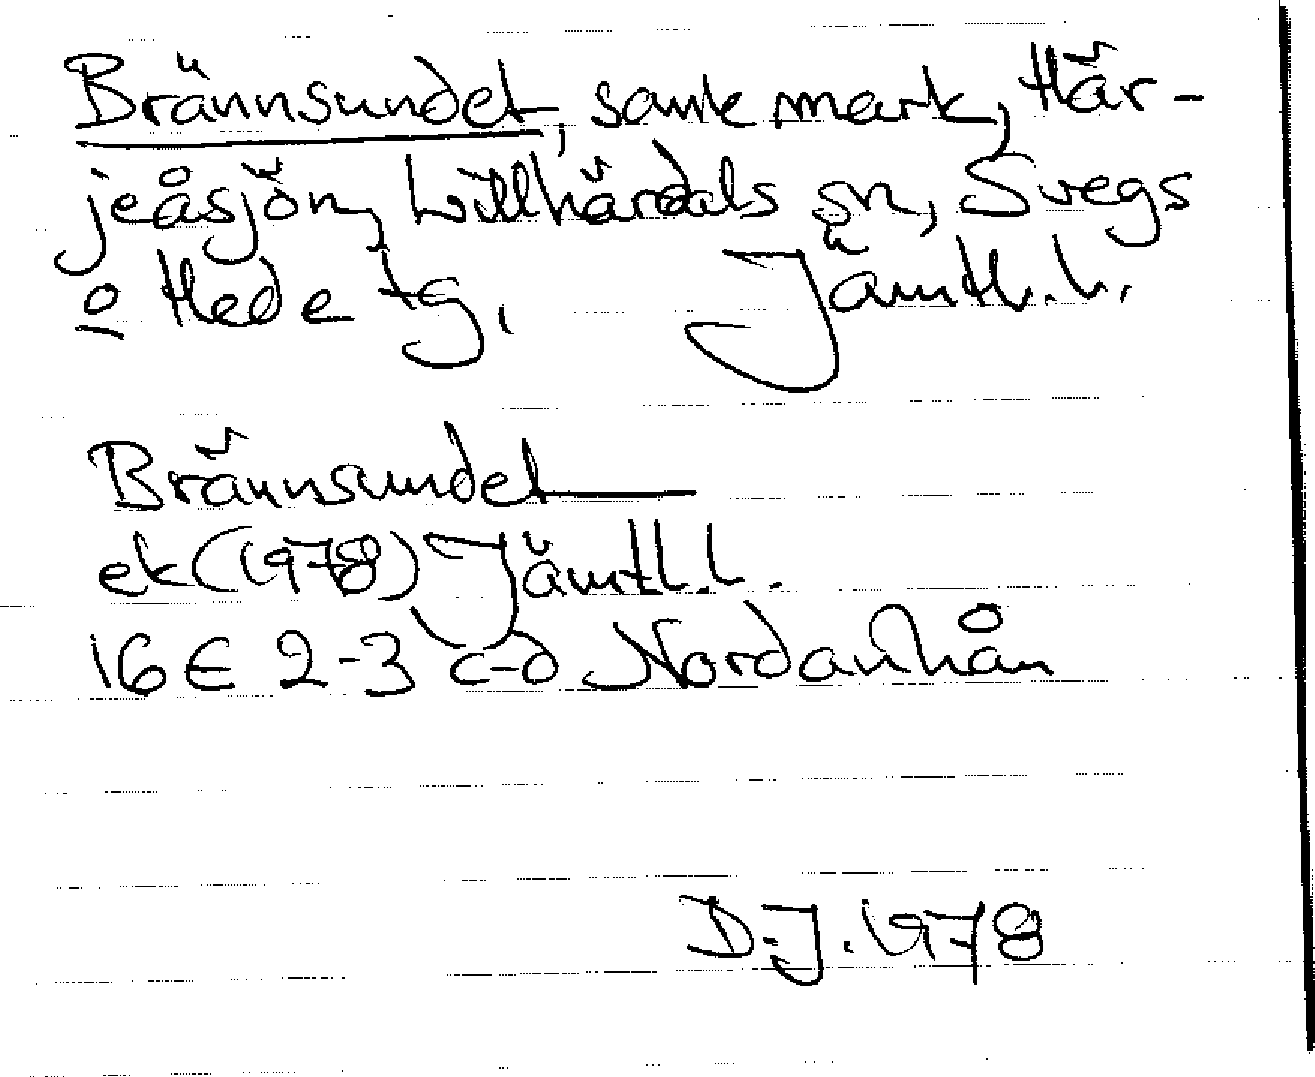 Brännsundet, sank mark, Här-
jeåsjön, Lillhärdals sn, Svegs
o Hede tg. Jämtl. l.
Brännsundet
ek (1978) Jämtl. l.
16 E 2-3 c-d Nordanhån
D.J. 1978